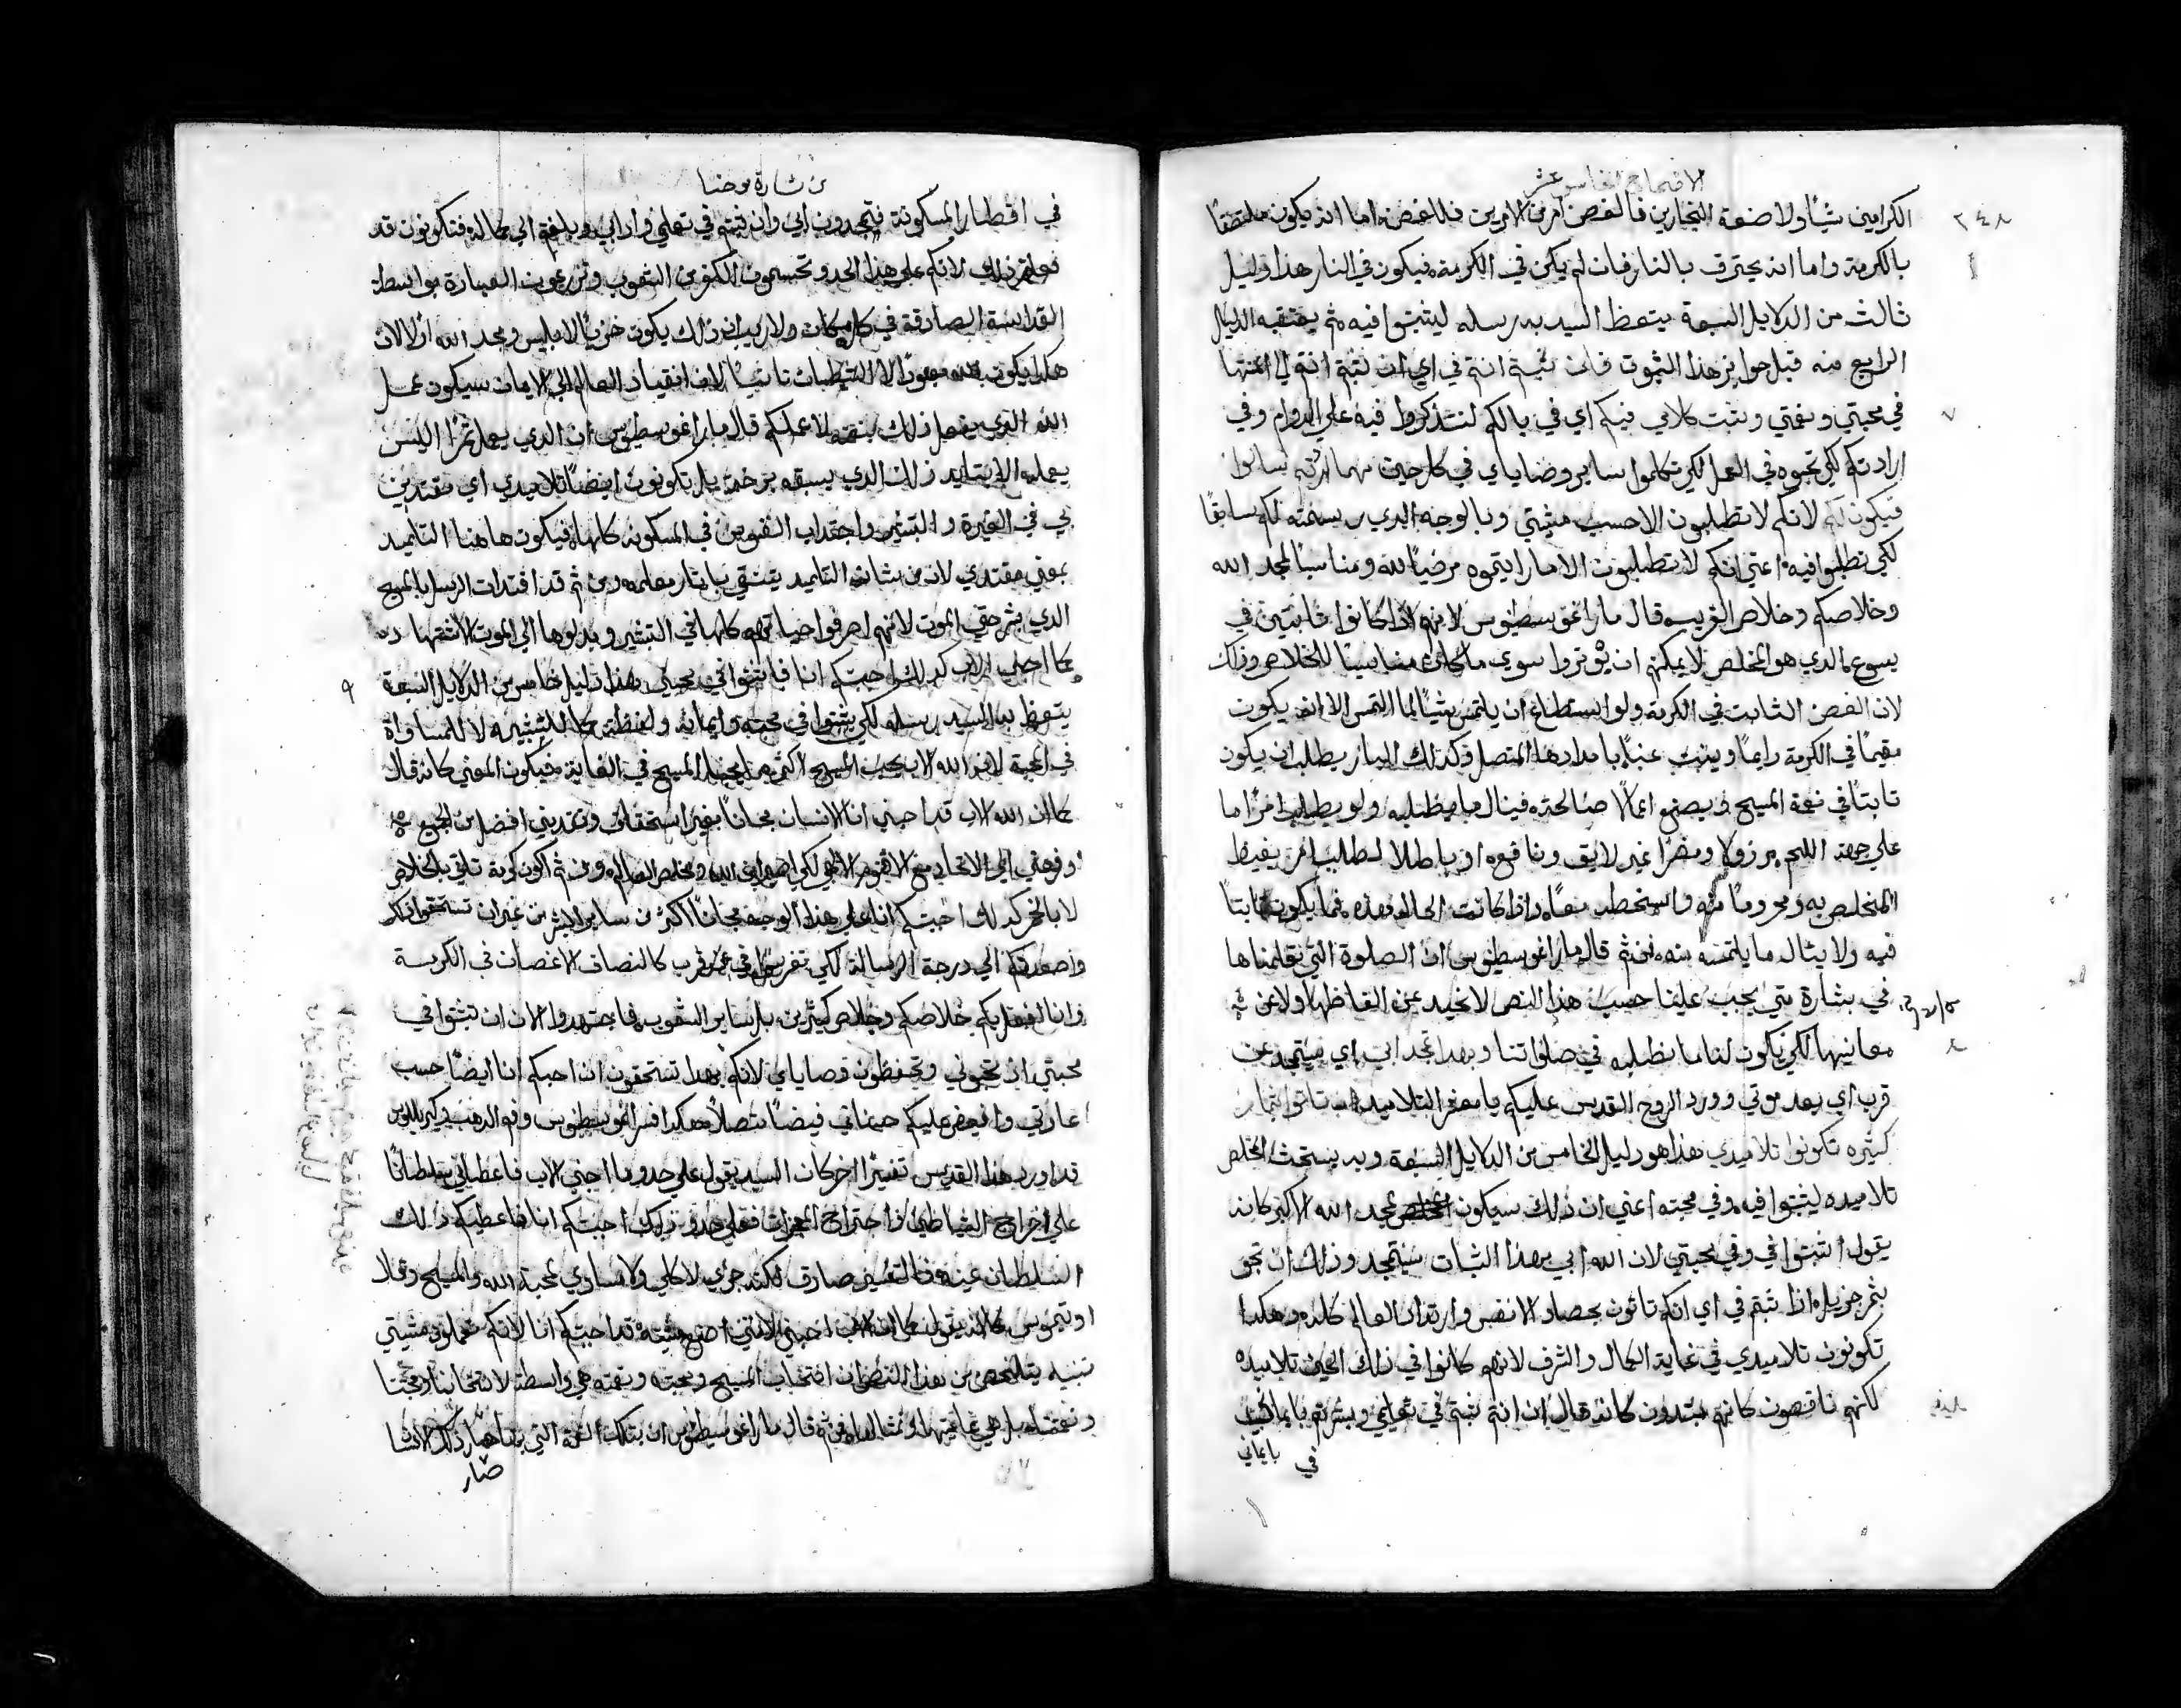 الاصحاح الخامس عشر
٢٤٨
الكرامين شيًا ولا صنعة النجارين فالغصن امر من الامرين فللغصن اما انه يكون ملتصقًا
بالكرمة واما انه يحترق بالنار فان لم يكن في الكرمة فيكون في النار هذا دليل
ثالث من الدلايل السبعة يتعظ السيد به رسله ليثبتوا فيه ثم يعتقبه الدليل
الرابع منه قبل جوايز هذا الثبوت فان ثبتم انتم في اي ان ثبتم انتم
٧
في محبتي ونعمتي وثبت كلامي فيكم اي في بالكم لتتذكروا فيه علي الدوام وفي
ارادتكم لكي تحبوه في العمل لكي تكملوا ساير وصاياي في كل حين مهما اردتم تسالوا
فيكون لكم لانكم لا تطلبون الا حسب مشيتي وبالوجه الذي رسمته لكم سابقًا
لكي تطلبوا فيه اعني انكم لا تطلبون الا ما رايتموه مرضيًا لله ومناسبًا لمجد الله
وخلاصكم وخلاص القريب قال مار اغوسطينوس لانهم اذا كانوا ثابتين في
يسوع الذي هو المخلص لا يمكنهم ان يوثروا سوي ما كان مناسبًا للخلاص وذلك
لان الغصن الثابت في الكرمة ولو استطاع ان يلتمس شيًا لما التمس الا ان يكون
مقيمًا في الكرمة دايمًا وينبت عنبًا بامدادها المتصل فكذلك البار يطلب ان يكون
ثابتًا في نعمة المسيح ويصنع اعمالًا صالحة فينال ما يطلبه ولو يطلب امرًا ما
علي جهة اللحم مرذولا ومضرًا غير لايق ونافع او باطلا لطلب امر يغيظ
المخلص به ومحرومًا منه واسخطه معًا واذا كانت الحاله هذه فما يكون ثابتًا
فيه ولا يناله ما يلتمسه منه ثم قال مار اغوسطينوس ان الصلوة التي تعلمناها
في بشارة متي يجب علينا حسب هذا النص لا نحيد عن الفاظها ولا عن
٨
معانيها لكي يكون لنا ما نطلبه في صلواتنا وبهذا تمجد ابي اي سيتمجد عن
قرب اي بعد موتي وورود الروح القدس عليكم يا معشر التلاميذ ان تاتوا بثمار
كثيره تكونوا تلاميذي هذا هو دليل الخامس من الدلايل السبعة وبه يستحث المخلص
تلاميذه ليثبتوا فيه وفي محبته اعني ان ذلك سيكون لمجد الله الاكبر كانه
يقول اثبتوا في وفي محبتي لان الله ابي بهذا الثبات سيتمجد وذلك ان
بثمر جزيل اذا ثبتم في اي انكم تاتون بحصاد الانفس وارتداد العالم كله وهكذا
تكونون تلاميذي في غاية الكمال والشرف لانهم كانوا في ذلك الحين تلاميذه
لكنهم ناقصون كانهم مبتدون كانه قال ان انتم ثبتم في تعليمي وبشرتم بايماني
في بايماني
من بشارة يوحنا
في اقطار المسكونة فتمجدون ابي وان ثبتم في تعليمي وادابي وبلغتم الي كماله فتكونون قد
فعلتم ذلك لانكم علي هذا الحد وتحسمون الكفر من الشعوب وتزرعون العبادة بواسطة
القداسة الصادقة في كل مكان ولا ريب ان ذلك يكون خزيًا لابليس ومجد الله اولا لان
هكذا يكون الله معبودًا لا الشيطان ثانيًا لان انقياد العالم الي الايمان سيكون عمل
الله الذي يفعل ذلك بنعمه لا عملكم قال مار اغوسطينوس ان الذي يعمل ثمرًا اليس
يعمله الا بتاييد ذلك الذي يسبقه برحمة بل تكونون ايضًا تلاميذي اي مقتدين
بي في الغيرة والتبشير واجتذاب النفوس في المسكونة كلها فيكون هاهنا التلميذ
بمعني مقتدي لان من شان التلميذ يقتفي باثار معلمه ومن ثم قد اقتدت الرسل بالمسيح
الذي بشر حتي الموت لانهم اصرفوا حياتهم كلها في التبشير وبذلوها الي الموت الاشتهاده
٩
كما احبني الاب كذلك احبتكم انا فاثبتوا في محبتي هذا دليل خامس من الدلايل السبعة
يتعظ به السيد رسله لكي يثبتوا في محبته وايمانه ولفظة كما للتشبيه لا للمساواة
في المحبة لان الله الاب يحب المسيح اكثر مما يحبنا المسيح في الغاية فيكون المعني كانه قال
كما ان الله الاب قد احبني انا الانسان مجانًا بغير استحقاق وتقدمني افضل من الجميع
ورفعني الي الاتحاد مع الاقنوم الالهي لكي اصير ابن الله ومخلص العالم ومن ثم اكون كرمة تاتي بالخلاص
لا بالخمر كذلك احبتكم انا علي هذا الوجه مجانًا اكثر من ساير البشر من غير ان تستحقوا ذلك
واصعدتكم الي درجة الرسالة لكي تقربوا في عن قرب كالتصاق الاغصان في الكرمة
وانا افعل بكم خلاصكم وخلاص كثيرين بل ساير الشعوب فاجتهدوا الان ان تثبتوا في
محبتي اذ تحبوني وتحفظون وصاياي لانكم بهذا تستحقون ان احبكم انا ايضًا حسب
عادتي وافيض عليكم حسناتي فيضًا متصلا هكذا فسر اغوسطينوس وفم الذهب وكيرللوس
قد اورد هذا القديس تفسيرًا اخر كان السيد يقول علي حدو ما احبني الاب فاعطاني سلطانًا
علي اخراج الشياطين واجتراح المعجزات فعلي حدو ذلك احبتكم انا فاعطيكم ذلك
السلطان عينه فالتفسير صادق لكنه جزي لا كلي ولا مساوي لمحبة الله والمسيح وقال
اوتيموس كانه يقول كما ان الاب احبني لانني اصنع مشيته قد احبتكم انا لانكم تعملون مشيتي
تنبيه يتلخص من هذا النص ان انتخاب المسيح ومحبته ونعمته هي واسطة لانتخابنا ومحبتنا
ونعمتنا بل هي غايتها ومثالها ثم قال مار اغوسطينوس ان بتلك النعمة التي بها صار ذلك الانسان
صار